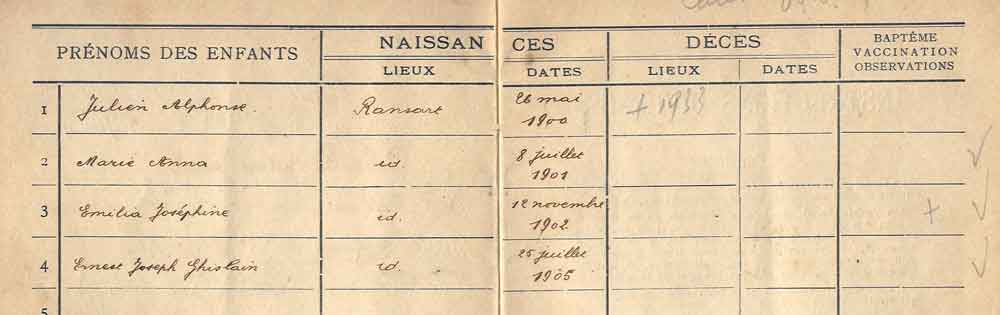 PRÉNOMS DES ENFANTS NAISSANCES DÉCÈS BAPTÊME
VACCINATION
OBSERVATIONS
LIEUX DATES LIEUX DATES
1 Julien Alphonse. Ransart 26 mai
1900 + 1933
2 Marie Anna id. 8 juillet
1901
3 Emilia Joséphine id. 12 novembre
1902 +
4 Ernest Joseph Ghislain id. 25 juillet
1905
5